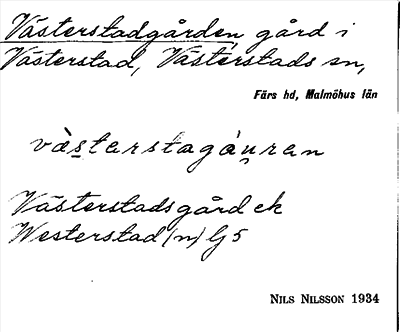 Västerstadgården gård i
Västerstad, Västerstads sn,
Färs hd, Malmöhus län
væ̀stərstagáu̯rən
Västerstadsgård ek
Westerstad (n) Gj 5
NILS NILSSON 1934